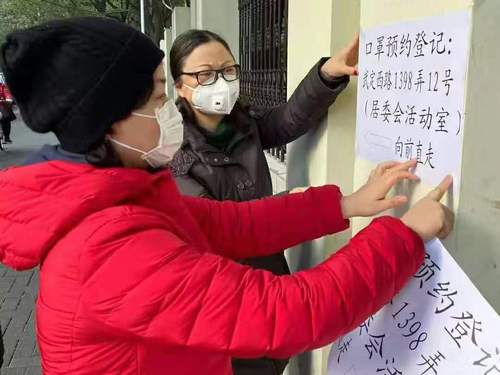 口罩预约登记：
武定西路1398弄12号
（居委会活动室）
向前直走
预约登
1398弄
委会活
走